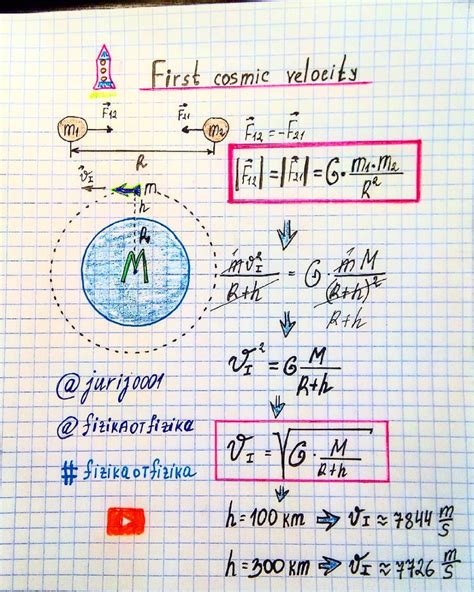 First cosmic velocity
F⃗12 F⃗21
m1 m2
R
F⃗12 = -F⃗21
|F⃗12| = |F⃗21| = G · m1·m2 / R²
v⃗I m
h
R
M
mvI² / R+h = G mM / (R+h)²
R+h
vI² = G M / R+h
vI = √(G · M / R+h)
@jurij0001
@fizikaotfizika
#fizikaotfizika
h = 100 km ⇒ vI ≈ 7844 m/s
h = 300 km ⇒ vI ≈ 7726 m/s